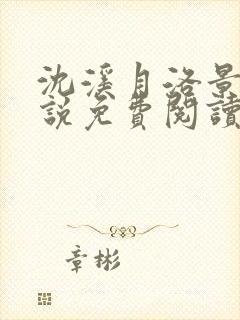 沈溪自洛景
說免費閱讀
章彬